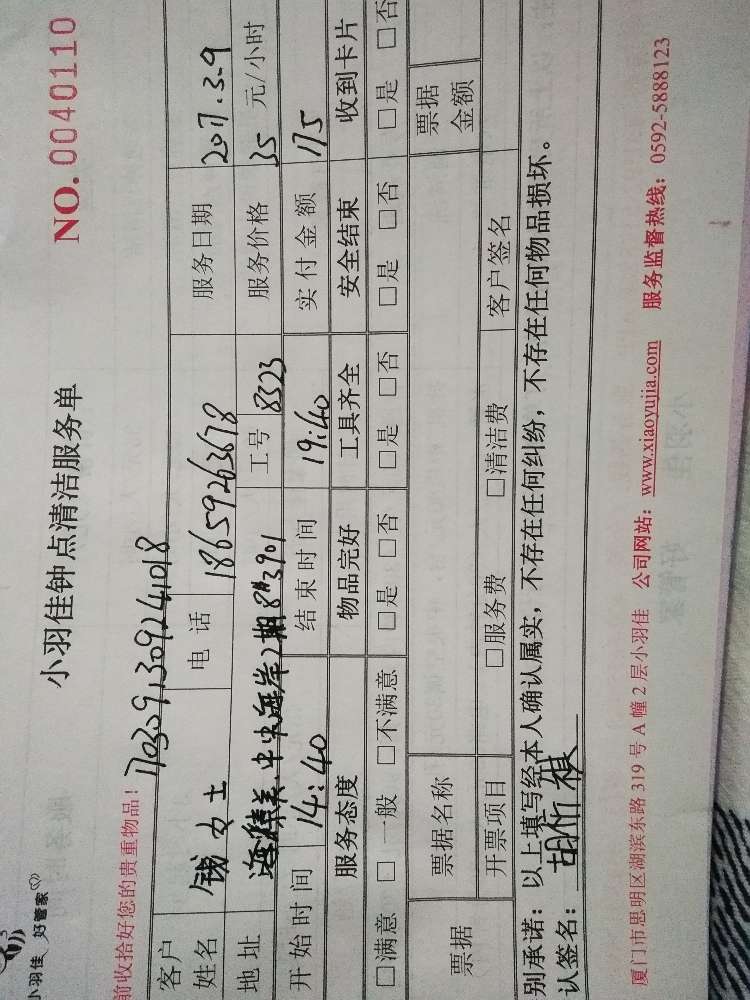 小羽佳 好管家
小羽佳钟点清洁服务单
NO. 0040110
前收拾好您的贵重物品！ 1703091309241018
客户姓名 钱女士 电话 18659263678 服务日期 2017.3.9
地址 中央海岸2期8#3901 工号 8323 服务价格 35 元/小时
开始时间 14:40 结束时间 19:40 实付金额 175
服务态度 物品完好 工具齐全 安全结束 收到卡片
□满意 □一般 □不满意 □是 □否 □是 □否 □是 □否 □是 □否
票据 票据名称 票据金额
开票项目 □服务费 □清洁费 客户签名
别承诺：以上填写经本人确认属实，不存在任何纠纷，不存在任何物品损坏。
认签名：胡 根
厦门市思明区湖滨东路 319 号 A 幢 2 层小羽佳 公司网站：www.xiaoyujia.com 服务监督热线：0592-5888123